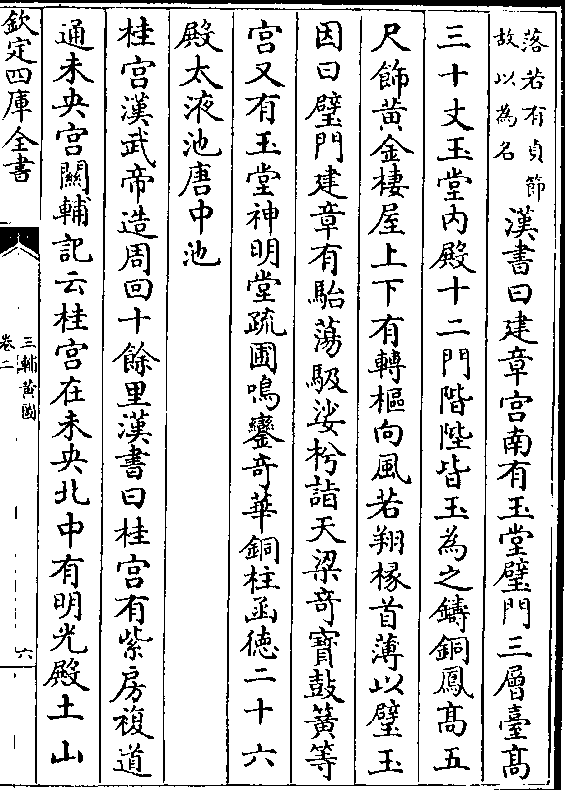 落若有貞節
故以為名
漢書曰建章宫南有玉堂璧門三層臺髙
三十丈玉堂内殿十二門階陛皆玉為之鑄銅鳳髙五
尺飾黄金棲屋上下有轉樞向風若翔椽首薄以璧玉
因曰璧門建章有駘蕩馺娑枍詣天梁竒寶鼓簧等
宫又有玉堂神明堂疏圃鳴鑾竒華銅柱函徳二十六
殿太液池唐中池
桂宫漢武帝造周回十餘里漢書曰桂宫有紫房複道
通未央宫關輔記云桂宫在未央北中有明光殿土山
欽定四庫全書
三輔黄圖
卷二
六